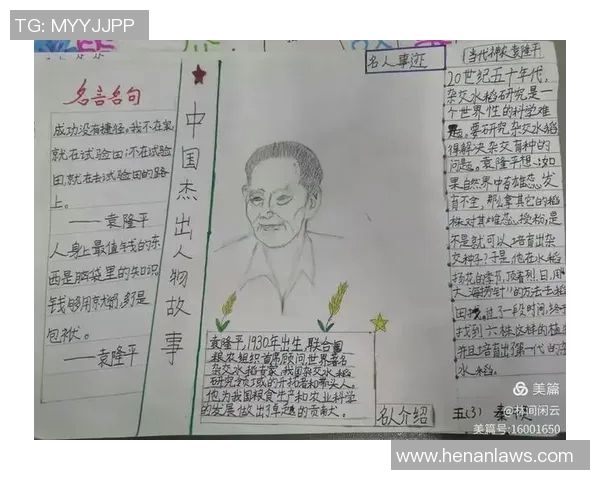 TG: MYYJJPP
名言名句
成功没有捷径。我不在家
就在试验田;不在试验
田,就在去试验田的路
上。
——袁隆平
人身上最值钱的东
西是脑袋里的知识
钱够用就行,多是
包袱。
——袁隆平
中国杰出人物故事
名人事迹
袁隆平,1930年出生,联合国
粮农组织首席顾问世界著名
杂交水稻专家,我国杂交水稻
研究领域的开拓者和带头人。
他为我国粮食生产和农业科学
的发展做出了卓越的贡献大。
名人介绍
《当代神农袁隆平
20世纪五十年代,
杂交水稻研究是一
个世界性的科学难
题。要研究杂交水稻
得解决杂交育种的
问题。袁隆平想:如
果自然界中有雄蕊发
育不全,那么拿其它的稻
株对其雌蕊授粉,是
不是就可以培育出杂
交种子?于是他在水稻
扬花的季节,顶着烈日,用
大海捞针"的方法去稻
田找。过了一段时间,终于
找到六株这样的植
并且培育出了第一代的杂
水稻。
五(3) 秦
美篇
@林间闲云
美篇号:16001650
www.henanlaws.com